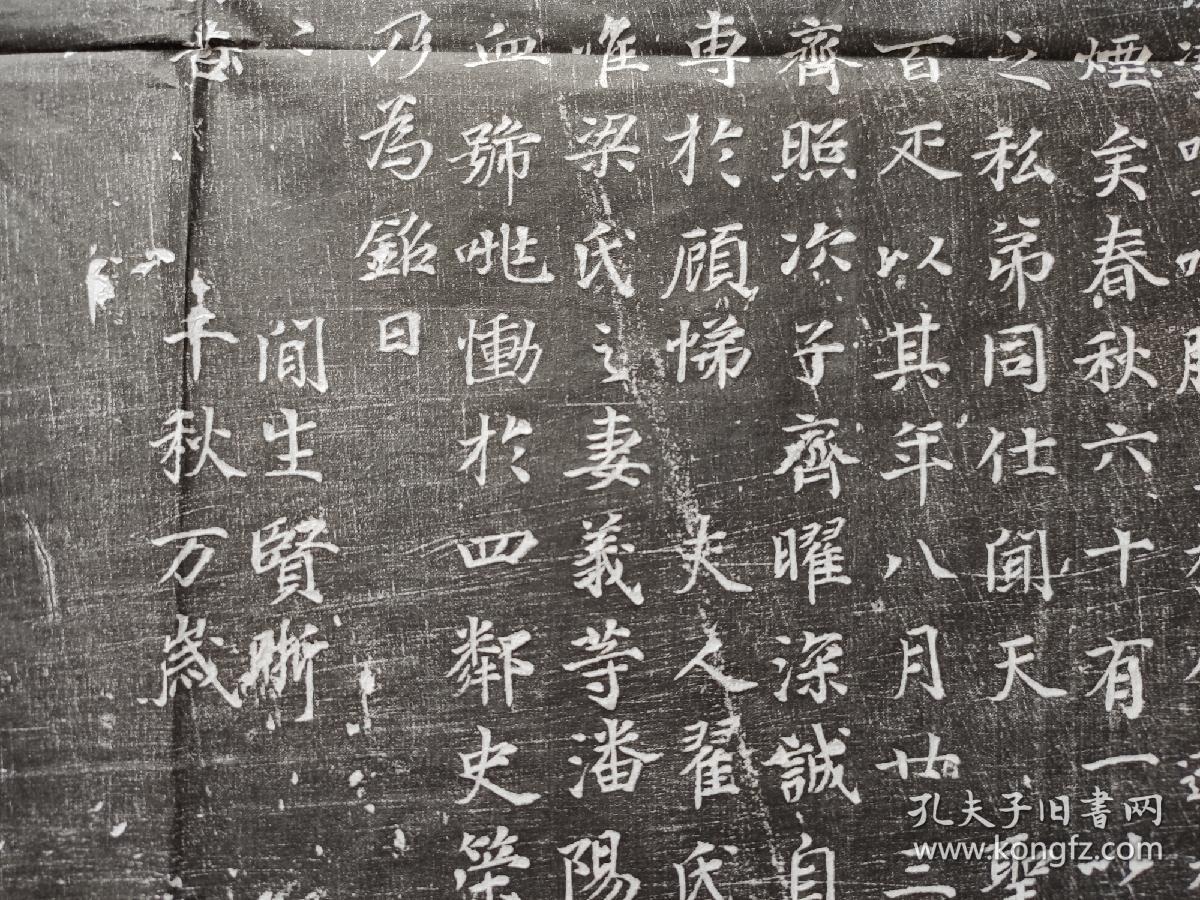 煙矣春秋六十有一以
之私弟同仕聞天聖
百疋以其年八月廿三
齊照次子齊曜深誠自
專於顧悌 夫人翟氏
唯梁氏之妻義等潘陽
血蹄咷慟於四鄰史筞
乃為銘曰
間生賢晣
千秋万歲
孔夫子旧書网
www.kongfz.com